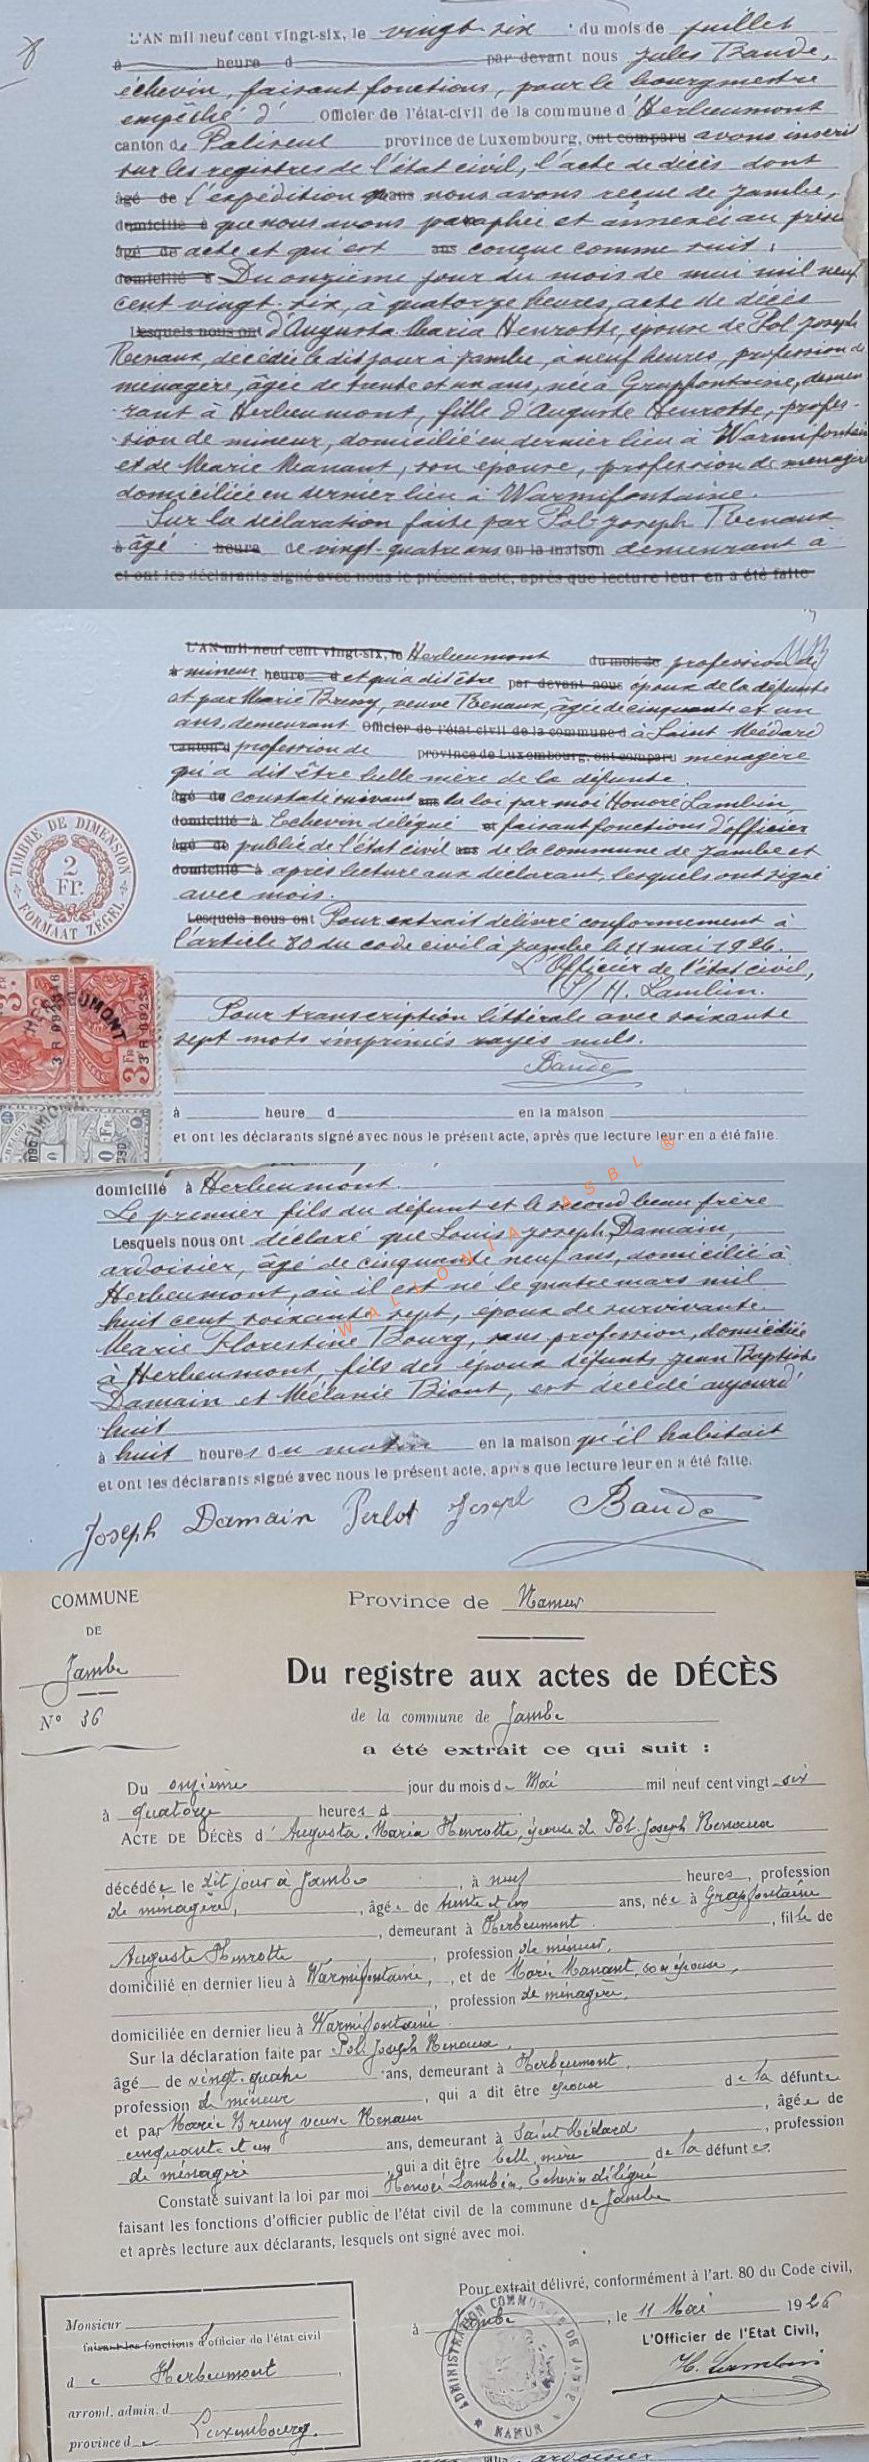 L'AN mil neuf cent vingt-six, le vingt six du mois de juillet
à heure d par devant nous Jules Baude,
échevin, faisant fonctions, pour le bourgmestre
empêché d' Officier de l'état-civil de la commune d'Herbeumont
canton de Paliseul province de Luxembourg, ont comparu avons inscrit
sur les registres de l'état civil, l'acte de décès dont
âgé de l'expédition ans nous avons reçue de Jambe,
domicilié à que nous avons paraphée et annexée au présent
âgé de acte et qui est ans conçue comme suit :
domicilié à Du onzième jour du mois de mai mil neuf
cent vingt-six, à quatorze heures, acte de décès
Lesquels nous ont d'Augusta Maria Henrotte, épouse de Pol Joseph
Renaux, décédée le dit jour à Jambe, à neuf heures, profession de
ménagère, âgée de trente et un ans, née à Grapfontaine, demeu
rant à Herbeumont, fille d'Auguste Henrotte, profes-
sion de mineur, domicilié en dernier lieu à Warmifontaine
et de Marie Manant, son épouse, profession de ménagère
domiciliée en dernier lieu à Warmifontaine.
Sur la déclaration faite par Pol-Joseph Renaux
à âgé heure de vingt-quatre ans en la maison demeurant à
et ont les déclarants signé avec nous le présent acte, après que lecture leur en a été faite
L'AN mil neuf cent vingt-six, le Herbeumont du mois de profession de
à mineur heure d et qui a dit être par devant nous époux de la défunte
et par Marie Bremy, veuve Renaux, âgée de cinquante et un
ans, demeurant Officier de l'état-civil de la commune d à Saint Médard
canton d profession de province de Luxembourg, ont comparu ménagère
qui a dit être belle mère de la défunte.
âgé de constaté suivant ans la loi par moi Honoré Lambin
domicilié à Echevin délégué et faisant fonctions d'officier
âgé de public de l'état civil ans de la commune de Jambe et
domicilié à après lecture aux déclarant, lesquels ont signé
avec mois.
Lesquels nous ont Pour extrait délivré conformément à
l'article 80 du code civil à Jambe le 11 mai 1926.
L'Officier de l'état civil,
S/ H. Lambin.
Pour transcription littérale avec soixante
sept mots imprimés rayés nuls.
Baude
à heure d en la maison
et ont les déclarants signé avec nous le présent acte, après que lecture leur en a été faite.
TIMBRE DE DIMENSION
2
Fr.
FORMAAT ZEGEL
HERBEUMONT
3 Fr
WALLONIA ASBL ®
domicilié à Herbeumont.
Le premier fils du défunt et le second beau frère
Lesquels nous ont déclaré que Louis Joseph Damain,
ardoisier, âgé de cinquante neuf ans, domicilié à
Herbeumont, où il est né le quatre mars mil
huit cent soixante sept, époux de survivante
Marie Florestine Bourg, sans profession, domiciliée
à Herbeumont, fils des époux défunts Jean Baptiste
Damain et Mélanie Biout, est décédé aujourd'
huit
à huit heures du matin en la maison qu'il habitait
et ont les déclarants signé avec nous le présent acte, après que lecture leur en a été faite.
Joseph Damain Perlot Joseph Baude
COMMUNE
DE
Jambe
N° 36
Province de Namur
Du registre aux actes de DÉCÈS
de la commune de Jambe
a été extrait ce qui suit :
Du onzième jour du mois de Mai mil neuf cent vingt-six
à quatorze heures d
ACTE DE DÉCÈS d'Augusta Maria Henrotte, épouse de Pol Joseph Renaux
décédée le dit jour à Jambe, à neuf heures, profession
de ménagère, âgée de trente et un ans, née à Grapfontaine
, demeurant à Herbeumont, fille de
Auguste Henrotte, profession de mineur,
domicilié en dernier lieu à Warmifontaine, et de Marie Manant, son épouse,
, profession de ménagère,
domiciliée en dernier lieu à Warmifontaine.
Sur la déclaration faite par Pol Joseph Renaux,
âgé de vingt-quatre ans, demeurant à Herbeumont,
profession de mineur, qui a dit être époux de la défunte
et par Marie Bremy veuve Renaux, âgée de
cinquante et un ans, demeurant à Saint Médard, profession
de ménagère qui a dit être belle mère de la défunte.
Constaté suivant la loi par moi Honoré Lambin, Echevin délégué
faisant les fonctions d'officier public de l'état civil de la commune de Jambe
et après lecture aux déclarants, lesquels ont signé avec moi.
Pour extrait délivré, conformément à l'art. 80 du Code civil,
à Jambe, le 11 Mai 1926
L'Officier de l'Etat Civil,
H. Lambin
ADMINISTRATION COMMUNALE DE JAMBE
NAMUR
Monsieur
faisant les fonctions d'officier de l'état civil
de Herbeumont
arrond. admin. d
province de Luxembourg.
ardoisier